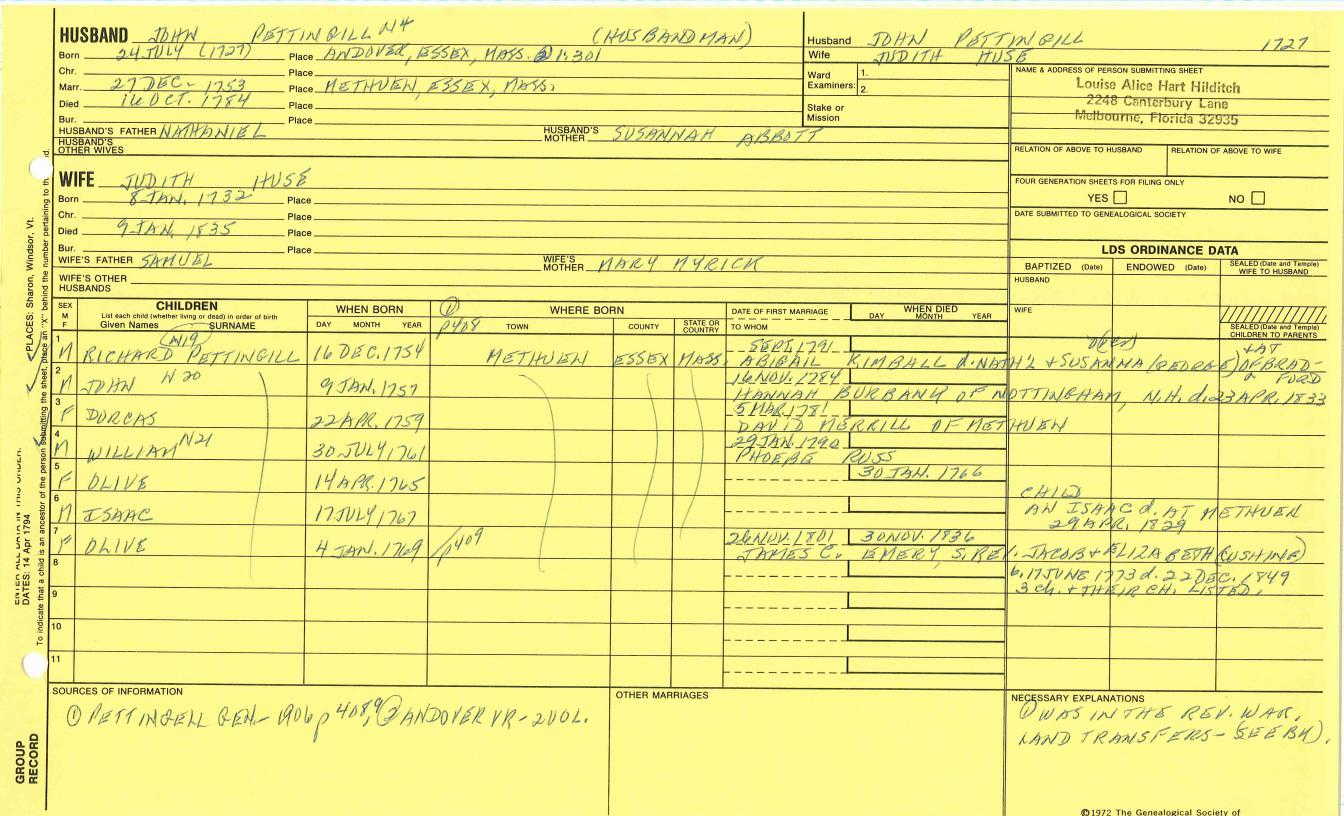 HUSBAND JOHN PETTINGILL N4 (HUSBANDMAN)
Born 24 JULY (1727) Place ANDOVER, ESSEX, MASS. ② 1:301
Chr. Place
Marr. 27 DEC. 1753 Place METHUEN, ESSEX, MASS.
Died 16 OCT. 1784 Place
Bur. Place
HUSBAND'S FATHER NATHANIEL HUSBAND'S MOTHER SUSANNAH ABBOTT
HUSBAND'S OTHER WIVES
Husband JOHN PETTINGILL 1727
Wife JUDITH HUSE
Ward Examiners: 1.
2.
Stake or Mission
NAME & ADDRESS OF PERSON SUBMITTING SHEET
Louise Alice Hart Hilditch
2248 Canterbury Lane
Melbourne, Florida 32935
RELATION OF ABOVE TO HUSBAND RELATION OF ABOVE TO WIFE
FOUR GENERATION SHEETS FOR FILING ONLY
YES NO
DATE SUBMITTED TO GENEALOGICAL SOCIETY
WIFE JUDITH HUSE
Born 8 JAN. 1732 Place
Chr. Place
Died 9 JAN. 1835 Place
Bur. Place
WIFE'S FATHER SAMUEL WIFE'S MOTHER MARY MYRICK
WIFE'S OTHER HUSBANDS
LDS ORDINANCE DATA
BAPTIZED (Date) ENDOWED (Date) SEALED (Date and Temple) WIFE TO HUSBAND
HUSBAND
WIFE
SEALED (Date and Temple) CHILDREN TO PARENTS
SEX M F CHILDREN
List each child (whether living or dead) in order of birth
Given Names SURNAME
WHEN BORN
DAY MONTH YEAR
① p408
WHERE BORN
TOWN COUNTY STATE OR COUNTRY
DATE OF FIRST MARRIAGE
TO WHOM
WHEN DIED
DAY MONTH YEAR
1 M RICHARD PETTINGILL N19 16 DEC. 1754 METHUEN ESSEX MASS SEPT. 1791
ABIGAIL KIMBALL d. NATH'L & SUSANNA (GEORGE) OF BRADFORD
2 M JOHN N20 9 JAN. 1757 16 NOV. 1784
HANNAH BURBANK OF NOTTINGHAM, N.H. d. 23 APR. 1833
3 F DORCAS 22 APR. 1759 5 MAR. 1781
DAVID MERRILL OF METHUEN
4 M WILLIAM N21 30 JULY 1761 29 JAN. 1790
PHOEBE RUSS
5 F OLIVE 14 APR. 1765 30 JAN. 1766
6 M ISAAC 17 JULY 1767
CHILD
AN ISAAC d. AT METHUEN
29 APR. 1829
7 F OLIVE 4 JAN. 1769 p409 26 NOV. 1801 30 NOV. 1836
JAMES C. EMERY, S. REV. JACOB & ELIZABETH (CUSHING)
b. 17 JUNE 1773 d. 22 DEC. 1849
3 ch. & THEIR CH. LISTED.
8
9
10
11
SOURCES OF INFORMATION
① PETTINGELL GEN.- 1906 p 408,9 ② ANDOVER VR - 2 VOL.
OTHER MARRIAGES
NECESSARY EXPLANATIONS
① WAS IN THE REV. WAR.
LAND TRANSFERS - (SEE BK).
©1972 The Genealogical Society of
PLACES: Sharon, Windsor, Vt.
ENTER ALL DATA IN THIS ORDER:
DATES: 14 Apr 1794
To indicate that a child is an ancestor of the person submitting the sheet, place an "X" behind the number pertaining to th
GROUP RECORD